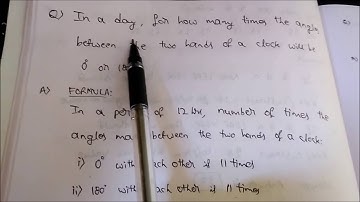 Q) In a day, for how many times the angles
between the two hands of a clock will be
0° or 18
A) FORMULA:
In a per of 12 hrs, number of times the
angles ma between the two hands of a clock:
i) 0° with each other is 11 times
ii) 180° with each other is 11 times